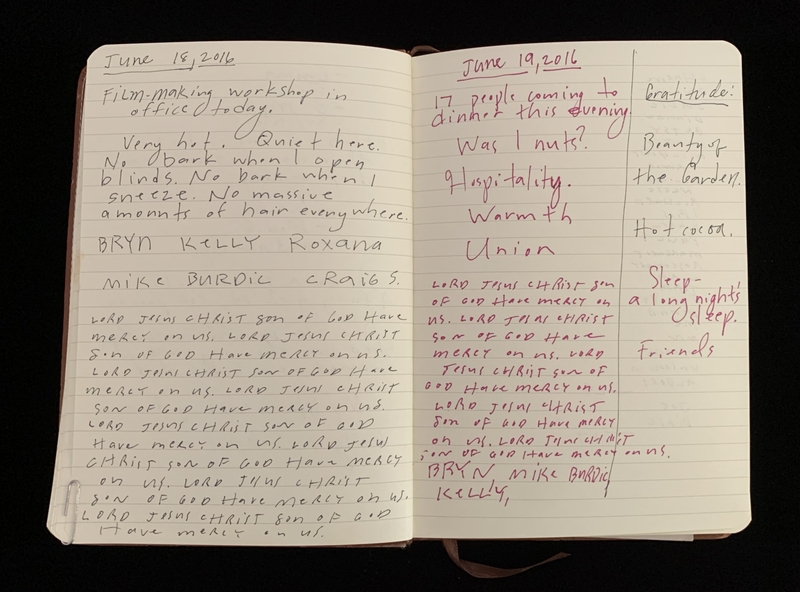 June 18, 2016
Film-making workshop in
office today.
Very hot. Quiet here.
No bark when I open
blinds. No bark when I
sneeze. No massive
amounts of hair everywhere.
BRYN KELLY Roxana
MIKE BURDIC CRAIG S.
LORD JESUS CHRIST Son OF GOD Have
MERCY on US. LORD JESUS CHRIST
Son OF GOD Have MERCY on US.
LORD JESUS CHRIST Son OF GOD Have
MERCY on US. LORD JESUS CHRIST
Son OF GOD Have MERCY on US.
LORD JESUS CHRIST Son OF GOD
Have MERCY on US. LORD JESUS
CHRIST Son OF GOD Have MERCY
on US. LORD JESUS CHRIST
Son OF GOD Have MERCY on US.
LORD JESUS CHRIST Son OF GOD
Have MERCY on US.
June 19, 2016
17 people coming to
dinner this evening.
Was I nuts?
Hospitality.
Warmth
Union
LORD JESUS CHRIST Son
OF GOD Have MERCY on
US. LORD JESUS CHRIST
Son OF GOD Have
MERCY on US. LORD
JESUS CHRIST Son OF
GOD Have MERCY on US.
LORD JESUS CHRIST
Son OF GOD Have MERCY
on US. LORD JESUS CHRIST
Son OF GOD Have MERCY on US.
BRYN MIKE BURDIC
KELLY,
Gratitude:
Beauty of
the Garden.
Hot cocoa.
Sleep-
a long night's
sleep.
Friends